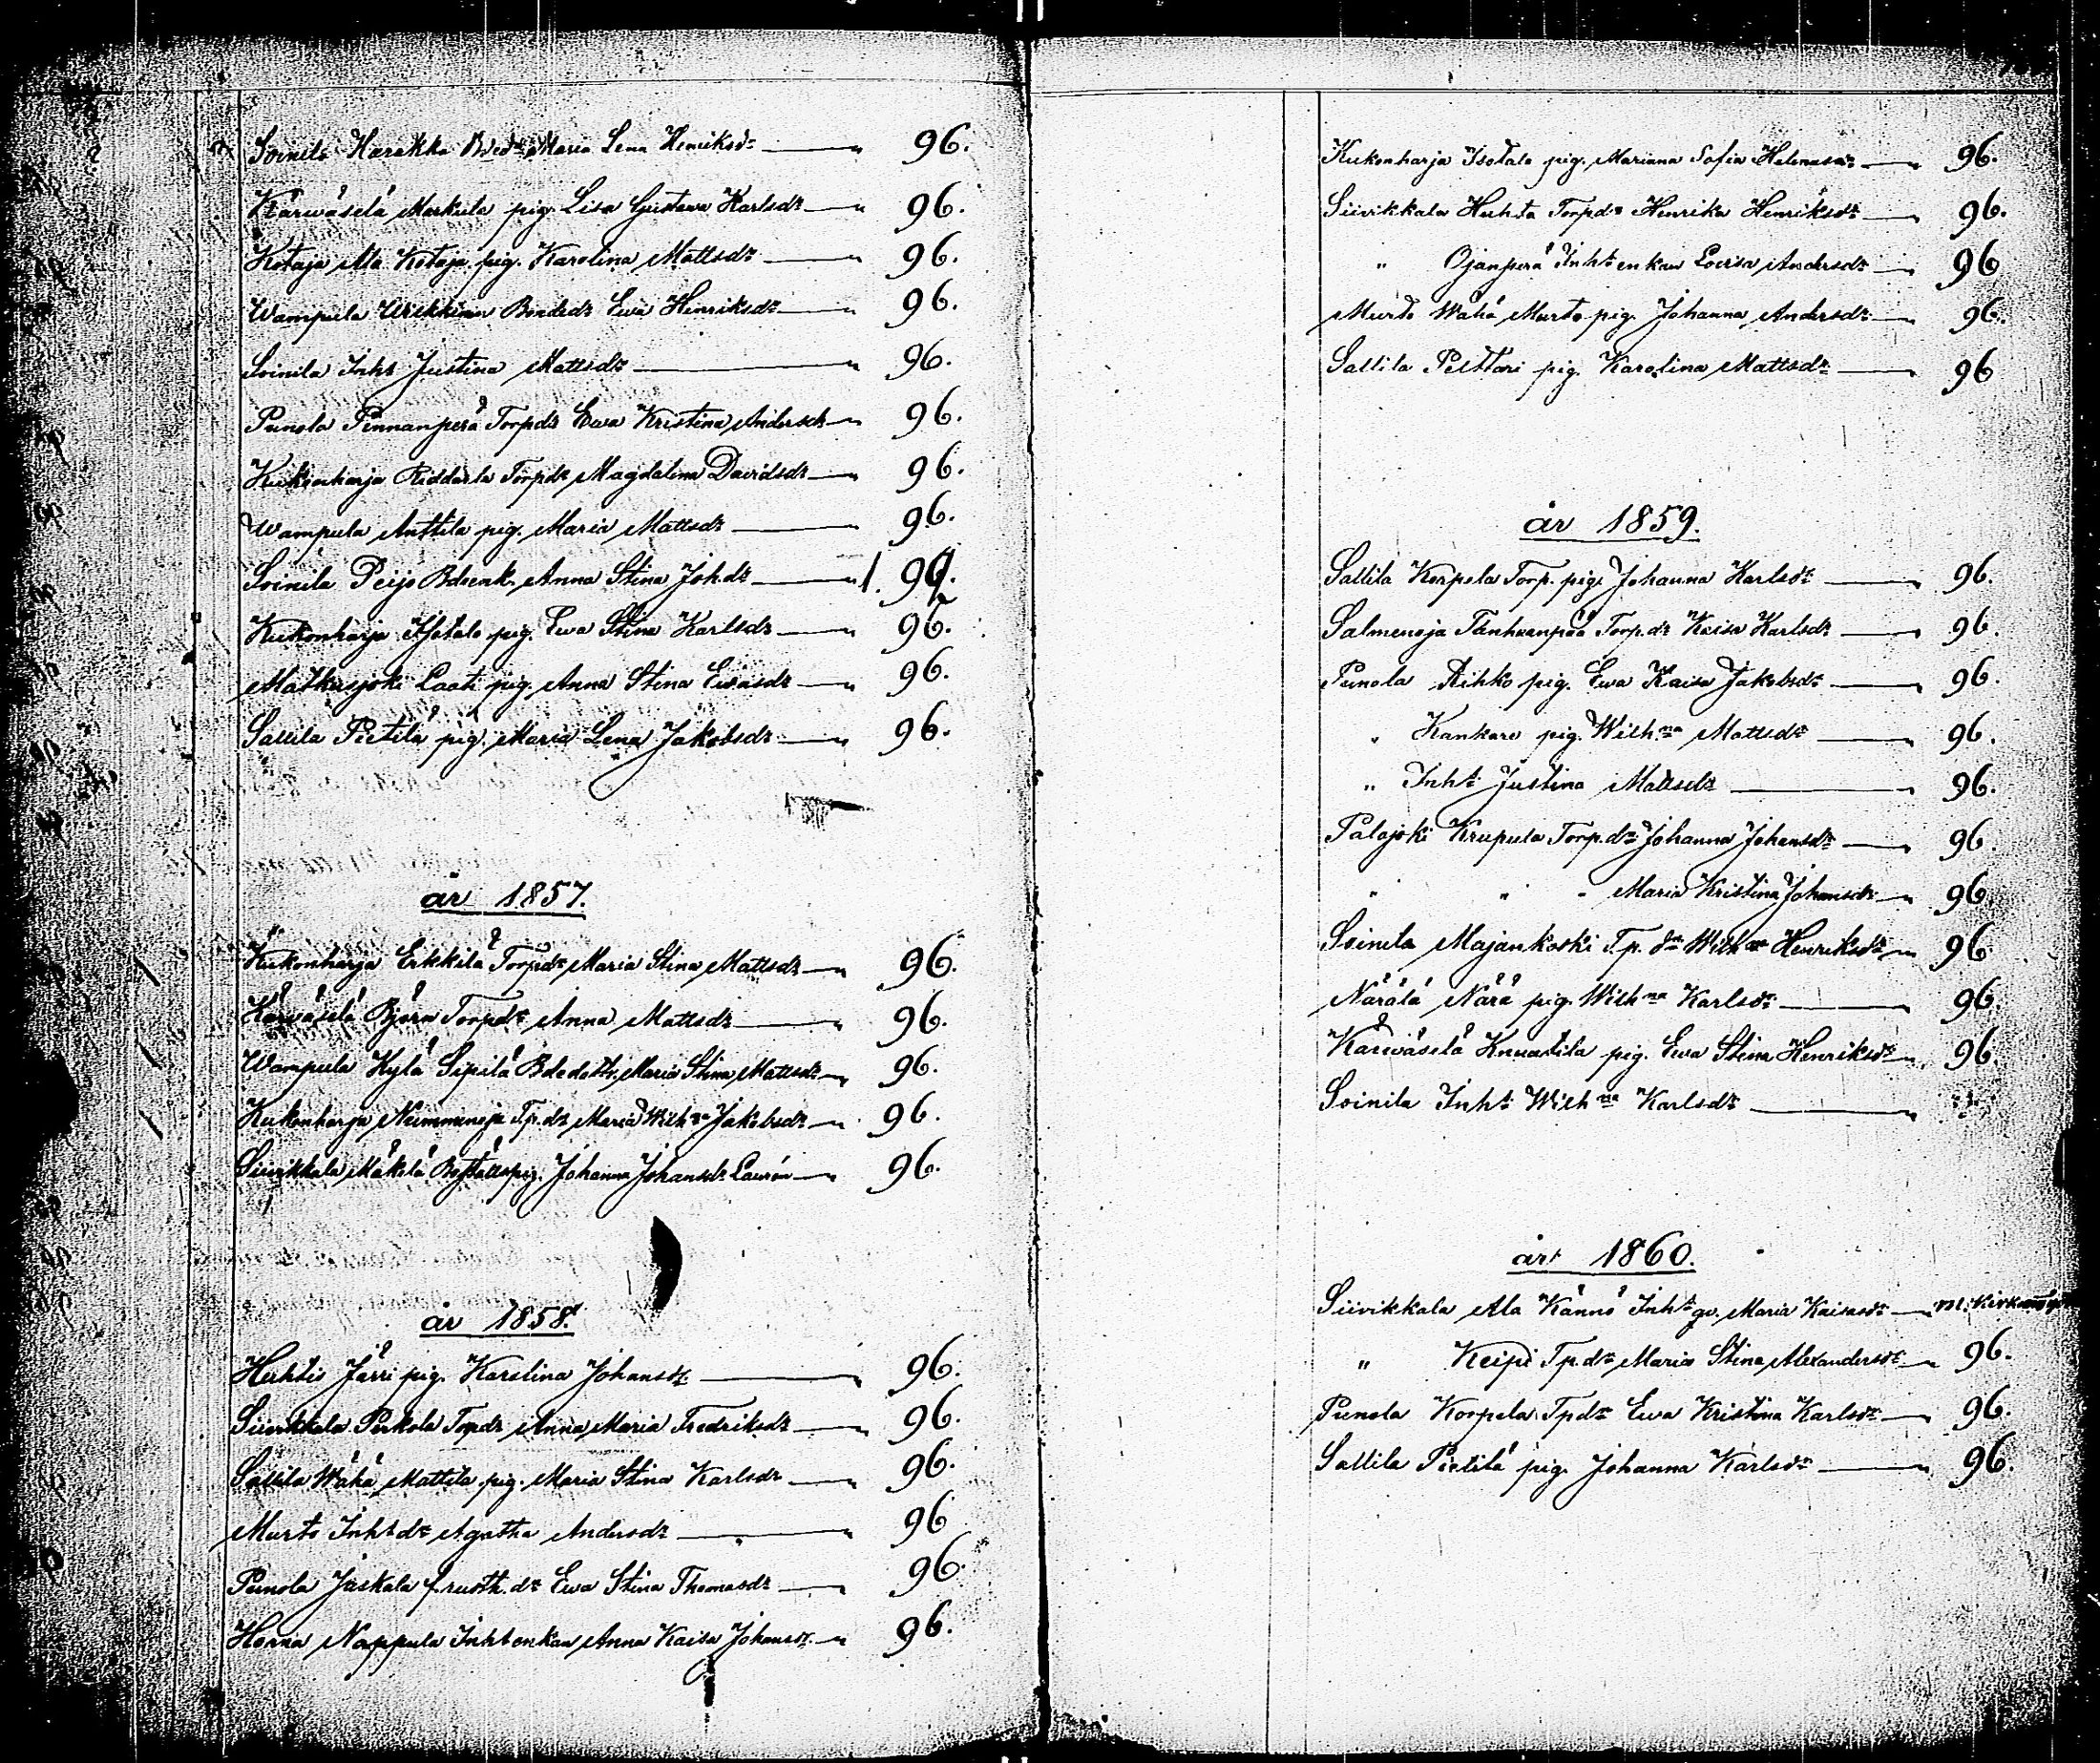 Soinila Harakka Maria Lena Henriksdr — " 96.
Kärwäselä Markula pig. Lisa Gustava Karlsdr — " 96.
Kotaja Ala Kotaja pig. Karolina Mattsdr — " 96.
Wampula Uhkkinen Bondedr Ewa Henriksdr — " 96.
Soinila Inhs Justina Mattsdr — " 96.
Punola Pinnanperä Torpdr Ewa Kristina Andersdr — " 96.
Kukonharja Riddarla Torpdr Magdalena Davidsdr — " 96.
Wampula Anttila pig. Maria Mattsdr — 96.
Soinila Peijo Bdeenk. Anna Stina Johdr —
Kukonharja Isotalo pig. Ewa Stina Karlsdr — " 96.
Matkusjoki Laati pig. Anna Stina Ewasdr — " 96.
Sallila Pietilä pig. Maria Lena Jakobsdr — " 96.
år 1857.
Kukonharja Erkkilä Torpdr Maria Stina Mattsdr — " 96.
Kärwäselä Björn Torpdr Anna Mattsdr — " 96.
Wampula Kylä Sipilä Maria Stina Mattsdr — " 96.
Kukonharja Nummenoja Tp.dr Maria Wilhna Jakobsdr — " 96.
Siivikkala Mäkelä Johanna Johansdr Laurén — " 96.
år 1858.
Huhtis Järri pig. Karolina Johansdr — " 96.
Siivikkala Perkola Torpdr Anna Maria Fredriksdr — " 96.
Sallila Wähä Mattila pig. Maria Stina Karlsdr — " 96.
Murto Inhs dr Agatha Andersdr — " 96
Punola Jaskala f. rusth. dr Ewa Stina Thomasdr — " 96.
Horna Nappula Inht enkan Anna Kaisa Johansdr — " 96.
Kukonharja Isotalo pig. Mariana Sofia Helenasdr — " 96.
Siivikkala Huhta Torpdr Henrika Henriksdr — " 96.
" Ojanperä Inht enkan Lovisa Andersdr — " 96
Murto Wähä Murto pig. Johanna Andersdr — " 96.
Sallila Pelttari pig. Karolina Mattsdr — " 96
år 1859.
Sallila Korpela Torp. pig. Johanna Karlsdr — " 96.
Salmenoja Tanhuanpää Torp.dr Kaisa Karlsdr — " 96.
Punola Rihko pig. Ewa Kaisa Jakobsdr — " 96.
" Kankare pig. Wilhna Mattsdr — " 96.
" Inht Justina Mattsdr — " 96.
Palojoki Krupula Torp.dr Johanna Johansdr — " 96.
" " " Maria Kristina Johansdr — " 96
Soinila Majankoski Tp. dr Wilhna Henriksdr — " 96
Närälä Närä pig. Wilhna Karlsdr — " 96.
Kärwäselä Knuutila pig. Ewa Stina Henriksdr — " 96.
Soinila Inht Wilhna Karlsdr — "
år 1860.
Siivikkala Ala Kännö Inht Maria Kaisasdr — "
" Keipi Tp.dr Maria Stina Alexandersdr — " 96.
Punola Korpela Tpdr Ewa Kristina Karlsdr — " 96.
Sallila Pietilä pig. Johanna Karlsdr — " 96.